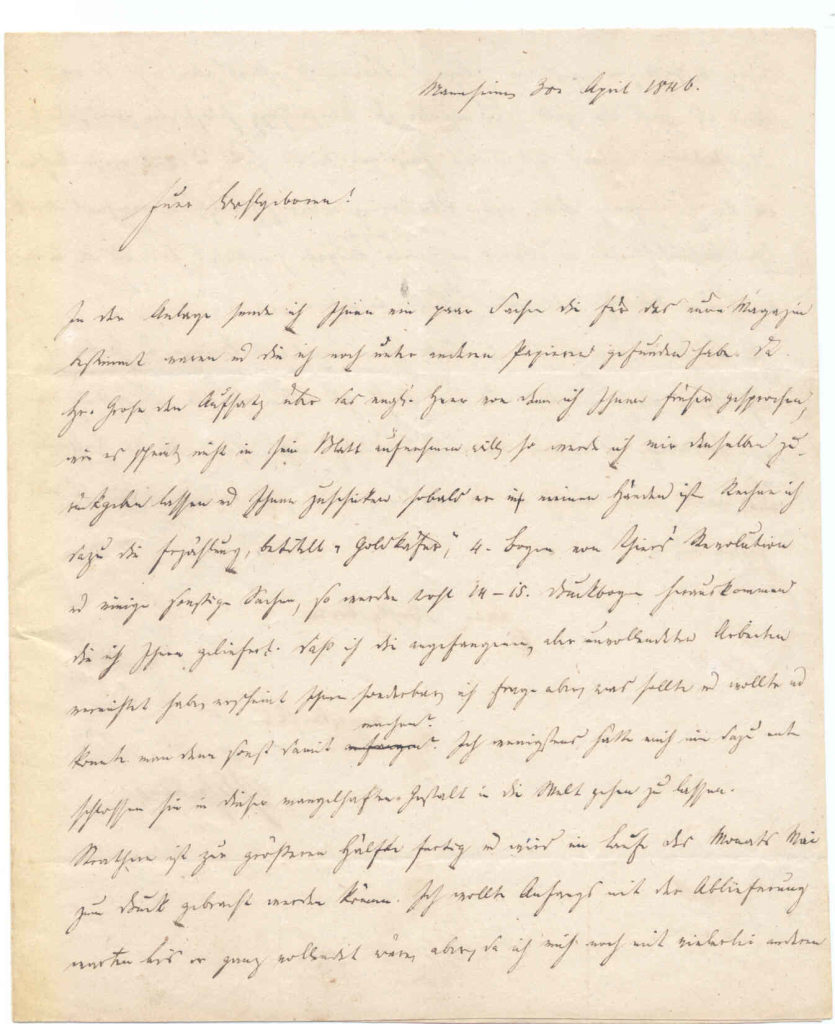 Mannheim 30. April 1846.
Euer Wohlgeboren!
In der Anlage sende ich Ihnen ein paar Sachen die für das neue Magazin
bestimmt waren u die ich noch unter anderen Papieren gefunden habe. Da
Hr. Grohe den Aufsatz über das engl. Heer von dem ich Ihnen früher gesprochen,
wie es scheint nicht in sein Blatt aufnehmen will, so werde ich mir denselben zu-
rückgeben lassen u Ihnen zuschicken sobald er in meinen Händen ist. Rechne ich
dazu die Erzählung, betitelt "Goldkäfer", 4. Bogen von Thiers Revolution
u einige sonstige Sachen, so werden wohl 14–15. Druckbogen herauskommen
die ich Ihnen geliefert. Daß ich die angefangenen, aber unvollendeten Arbeiten
vernichtet habe, erscheint Ihnen sonderbar, ich frage aber, was sollte u wollte u
konnte man denn sonst damit machen? Ich wenigstens hätte mich nie dazu ent
schlossen sie in dieser mangelhaften Gestalt in die Welt gehen zu lassen.
Strathern ist zur größeren Hälfte fertig u wird im Laufe des Monats Mai
zum Druck gebracht werden können. Ich wollte Anfangs mit der Ablieferung
warten bis er ganz vollendet wäre, aber, da ich mich noch mit vielerlei anderen